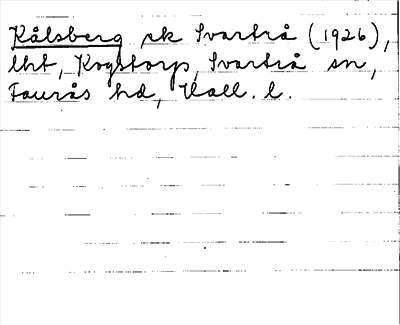 Kålsberg ek Svartrå (1926),
lht, Kogstorp, Svartrå sn,
Faurås hd, Hall. l.